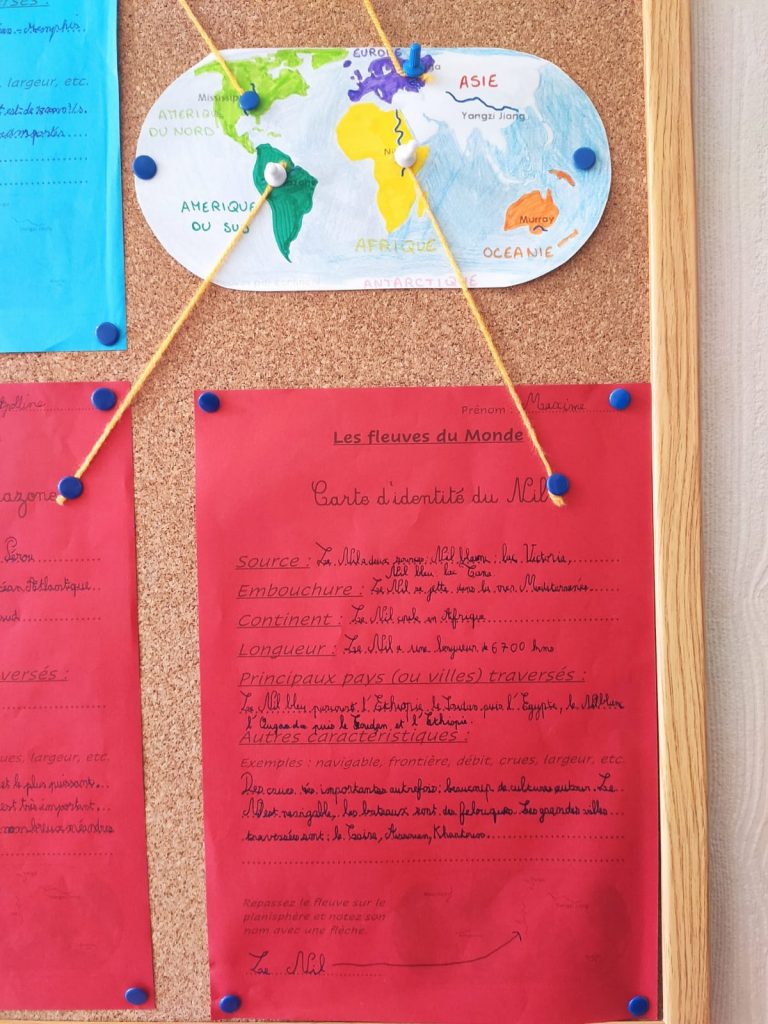 Memphis
largeur, etc.
EUROPE
ASIE
Mississip
Yangzi Jiang
AMERIQUE
DU NORD
Ni
AMERIQUE
DU SUD
Murray
AFRIQUE
OCEANIE
ANTARCTIQUE
Apolline
azone
Pérou
Atlantique
sud
versés :
ues, largeur, etc.
et le plus puissant
est très important
nombreux méandres
Prénom : Maxime
Les fleuves du Monde
Carte d'identité du Nil
Source : Le Nil a deux sources : Nil blanc : lac Victoria,
Nil bleu lac Tana
Embouchure : Le Nil se jette dans la mer Méditerranée
Continent : Le Nil coule en Afrique
Longueur : Le Nil a une longueur de 6700 kms
Principaux pays (ou villes) traversés :
Le Nil bleu parcourt l'Ethiopie le Soudan puis l'Egypte, le Nil blanc
l'Ouganda puis le Soudan et l'Ethiopie.
Autres caractéristiques :
Exemples : navigable, frontière, débit, crues, largeur, etc.
Des crues très importantes autrefois ; beaucoup de cultures autour. Le
Nil est navigable, les bateaux sont des felouques. Les grandes villes
traversées sont : le Caire, Assouan, Khartoum.
Repassez le fleuve sur le
planisphère et notez son
nom avec une flèche.
Le Nil